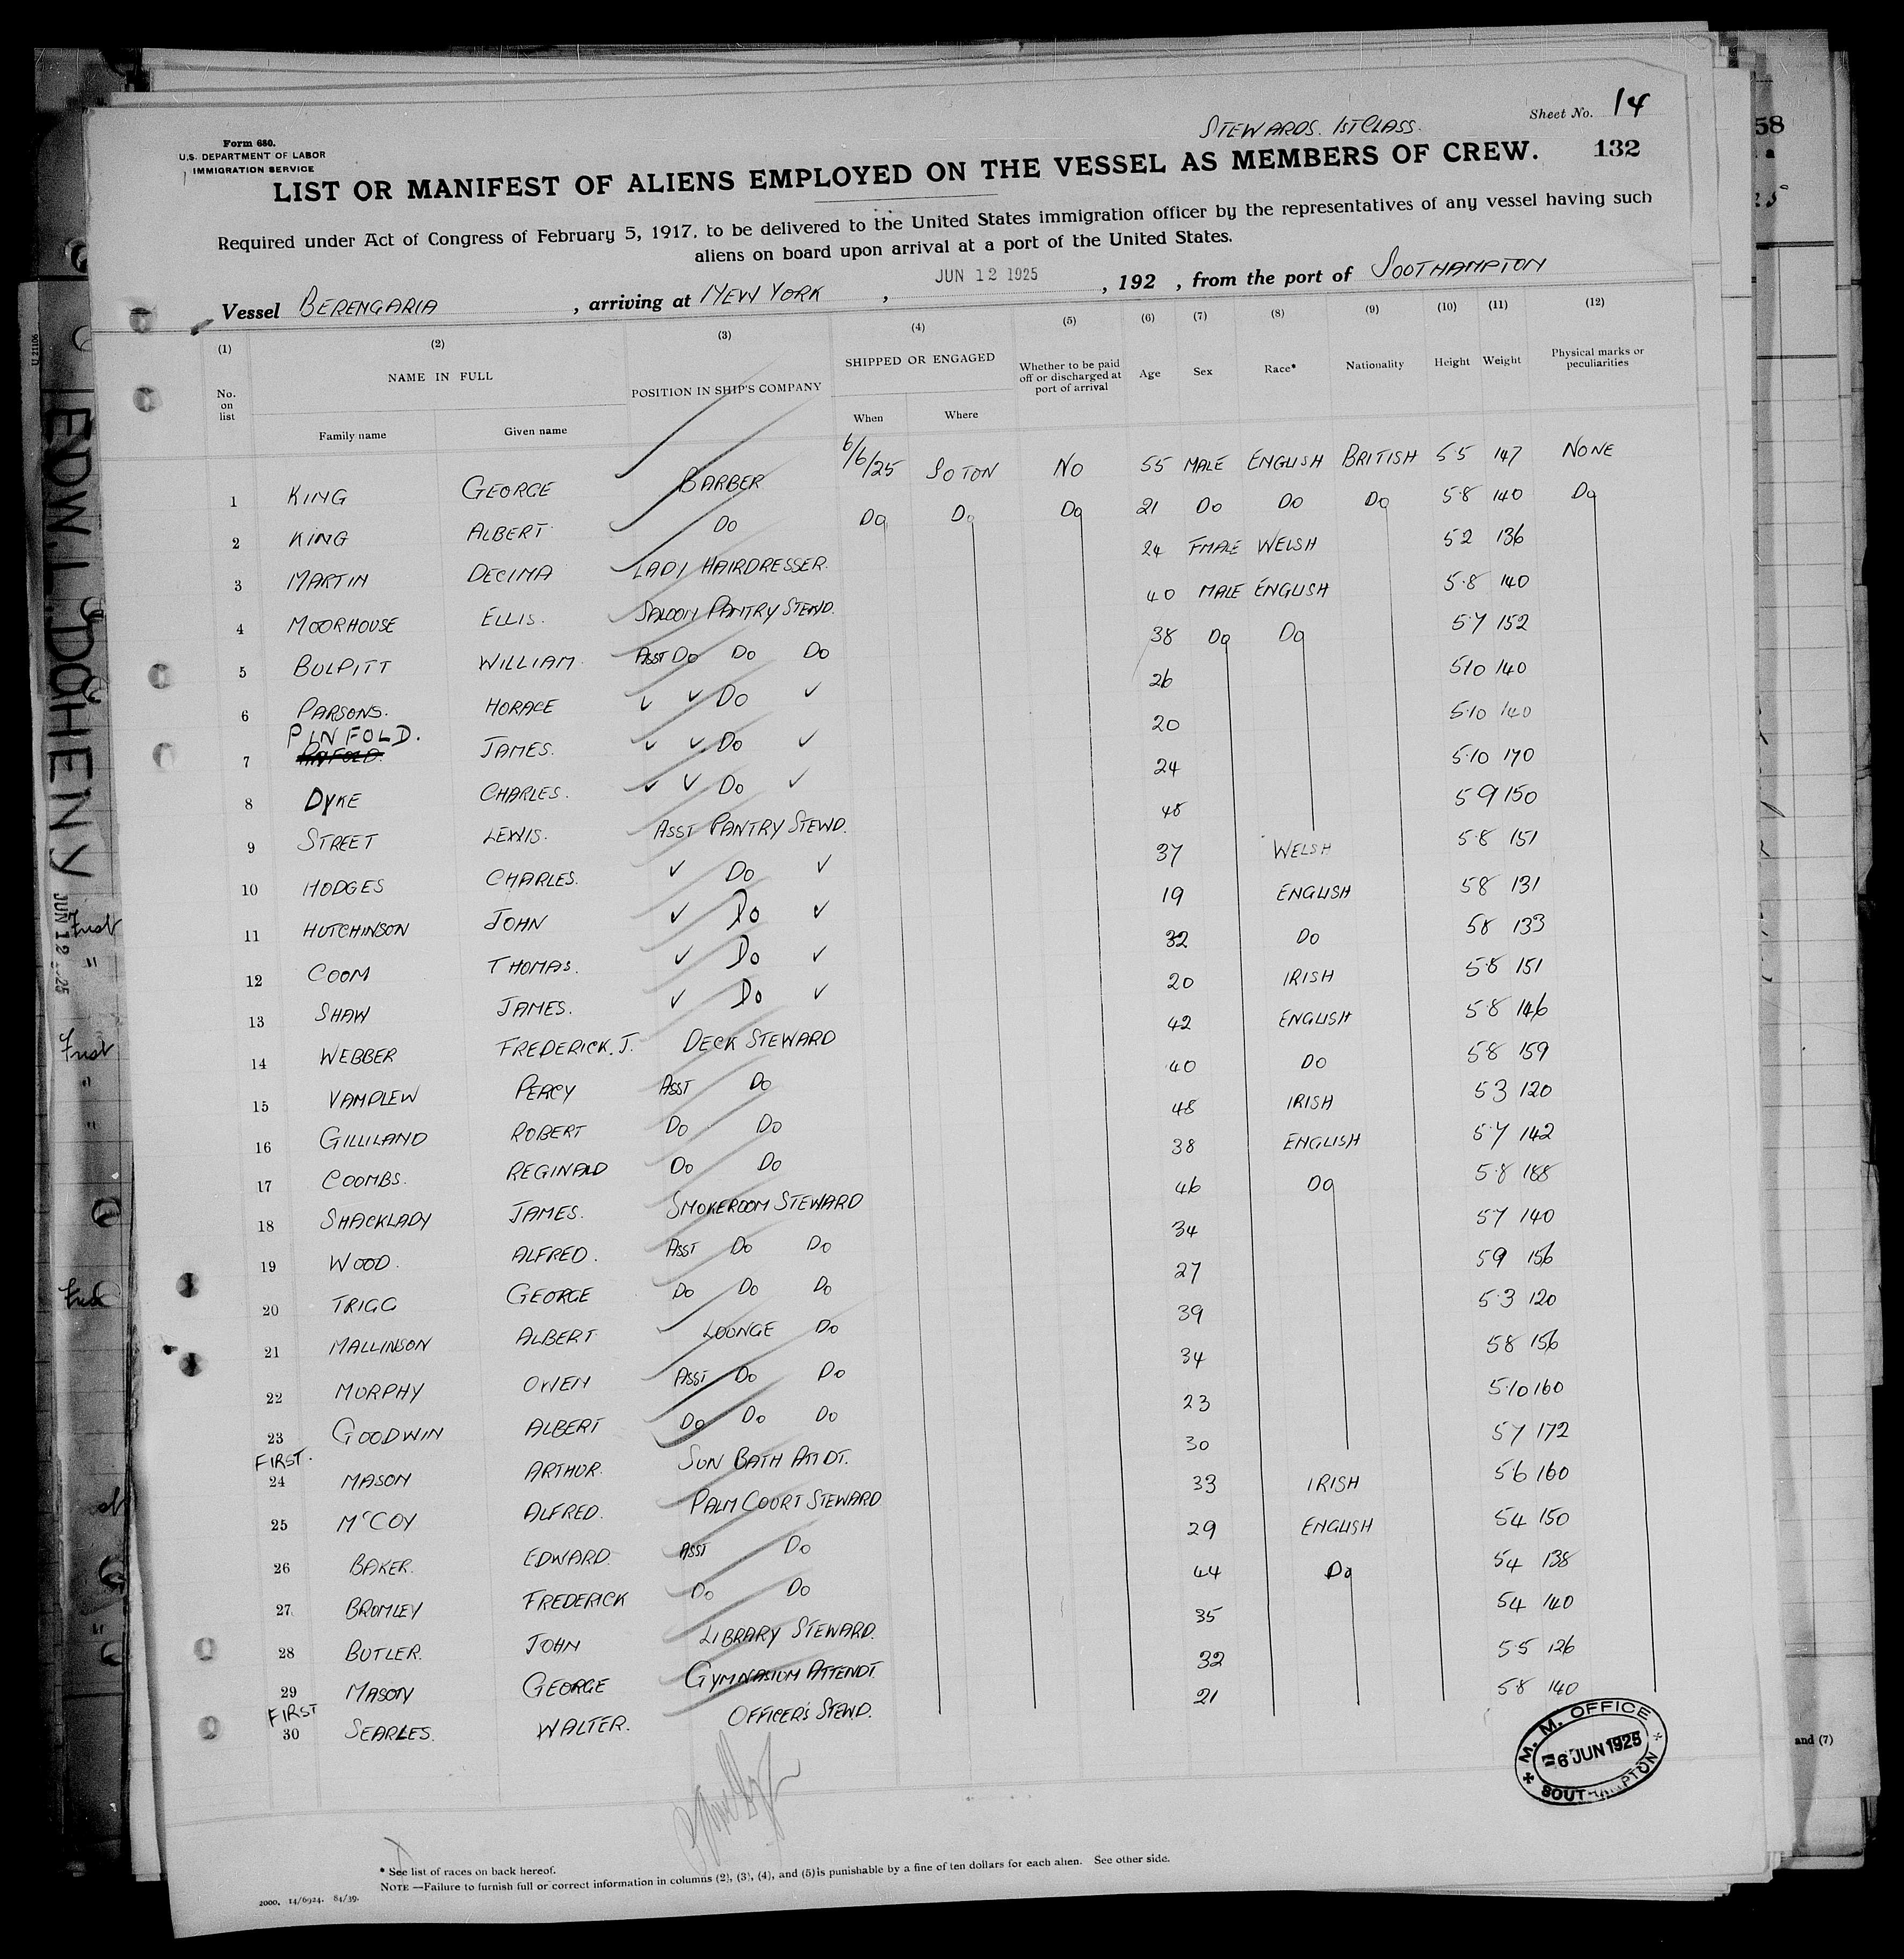 Form 680.
U.S. DEPARTMENT OF LABOR
IMMIGRATION SERVICE
STEWARDS. 1ST CLASS.
Sheet No. 14
132
LIST OR MANIFEST OF ALIENS EMPLOYED ON THE VESSEL AS MEMBERS OF CREW.
Required under Act of Congress of February 5, 1917, to be delivered to the United States immigration officer by the representatives of any vessel having such
aliens on board upon arrival at a port of the United States.
Vessel BERENGARIA, arriving at NEW YORK, JUN 12 1925, 192 , from the port of SOUTHAMPTON
(1) (2) (3) (4) (5) (6) (7) (8) (9) (10) (11) (12)
No. on list NAME IN FULL POSITION IN SHIP'S COMPANY SHIPPED OR ENGAGED Whether to be paid off or discharged at port of arrival Age Sex Race* Nationality Height Weight Physical marks or peculiarities
Family name Given name When Where
1 KING GEORGE BARBER 6/6/25 SOTON NO 55 MALE ENGLISH BRITISH 5 5 147 NONE
2 KING ALBERT DO DO DO DO 21 DO DO DO 5.8 140 DO
3 MARTIN DECIMA LADY HAIRDRESSER. 24 FMALE WELSH 5 2 136
4 MOORHOUSE ELLIS. SALOON PANTRY STEWD. 40 MALE ENGLISH 5.8 140
5 BULPITT WILLIAM. ASST DO DO DO 38 DO DO 5.7 152
6 PARSONS. HORACE ✓ ✓ DO ✓ 26 510 140
PINFOLD.
7 PINFOLD. JAMES. ✓ ✓ DO ✓ 20 5.10 140
8 DYKE CHARLES. ✓ ✓ DO ✓ 24 5.10 170
9 STREET LEWIS. ASST PANTRY STEWD. 48 5 9 150
10 HODGES CHARLES. ✓ DO ✓ 37 WELSH 5.8 151
11 HUTCHINSON JOHN ✓ DO ✓ 19 ENGLISH 58 131
12 COOM THOMAS. ✓ DO ✓ 32 DO 58 133
13 SHAW JAMES. ✓ DO ✓ 20 IRISH 5.8 151
14 WEBBER FREDERICK. J. DECK STEWARD 42 ENGLISH 5.8 146
15 VAMPLEW PERCY ASST DO 40 DO 5.8 159
16 GILLILAND ROBERT DO DO 48 IRISH 5 3 120
17 COOMBS. REGINALD DO DO 38 ENGLISH 5.7 142
18 SHACKLADY JAMES. SMOKEROOM STEWARD 46 DO 5.8 188
19 WOOD. ALFRED. ASST DO DO 34 57 140
20 TRIGG GEORGE DO DO DO 27 59 156
21 MALLINSON ALBERT LOUNGE DO 39 5.3 120
22 MURPHY OWEN ASST DO DO 34 58 156
23 GOODWIN ALBERT DO DO DO 23 5.10 160
FIRST.
24 MASON ARTHUR. SUN BATH ATTDT. 30 57 172
25 McCOY ALFRED. PALM COURT STEWARD 33 IRISH 5.6 160
26 BAKER. EDWARD. ASST DO 29 ENGLISH 54 150
27 BROMLEY FREDERICK DO DO 44 DO 54 138
28 BUTLER. JOHN LIBRARY STEWARD. 35 54 140
29 MASON GEORGE GYMNASIUM ATTENDT. 32 5 5 126
FIRST
30 SEARLES. WALTER. OFFICER'S STEWD. 21 5.8 140
M. M. OFFICE
6 JUN 1925
SOUTHAMPTON
* See list of races on back hereof.
NOTE —Failure to furnish full or correct information in columns (2), (3), (4), and (5) is punishable by a fine of ten dollars for each alien. See other side.
2000. 14/6924. 84/39.
EDW. L. DOHENY
JUN 12 1925
U 21106
First
"
First
"
"
58
and (7)